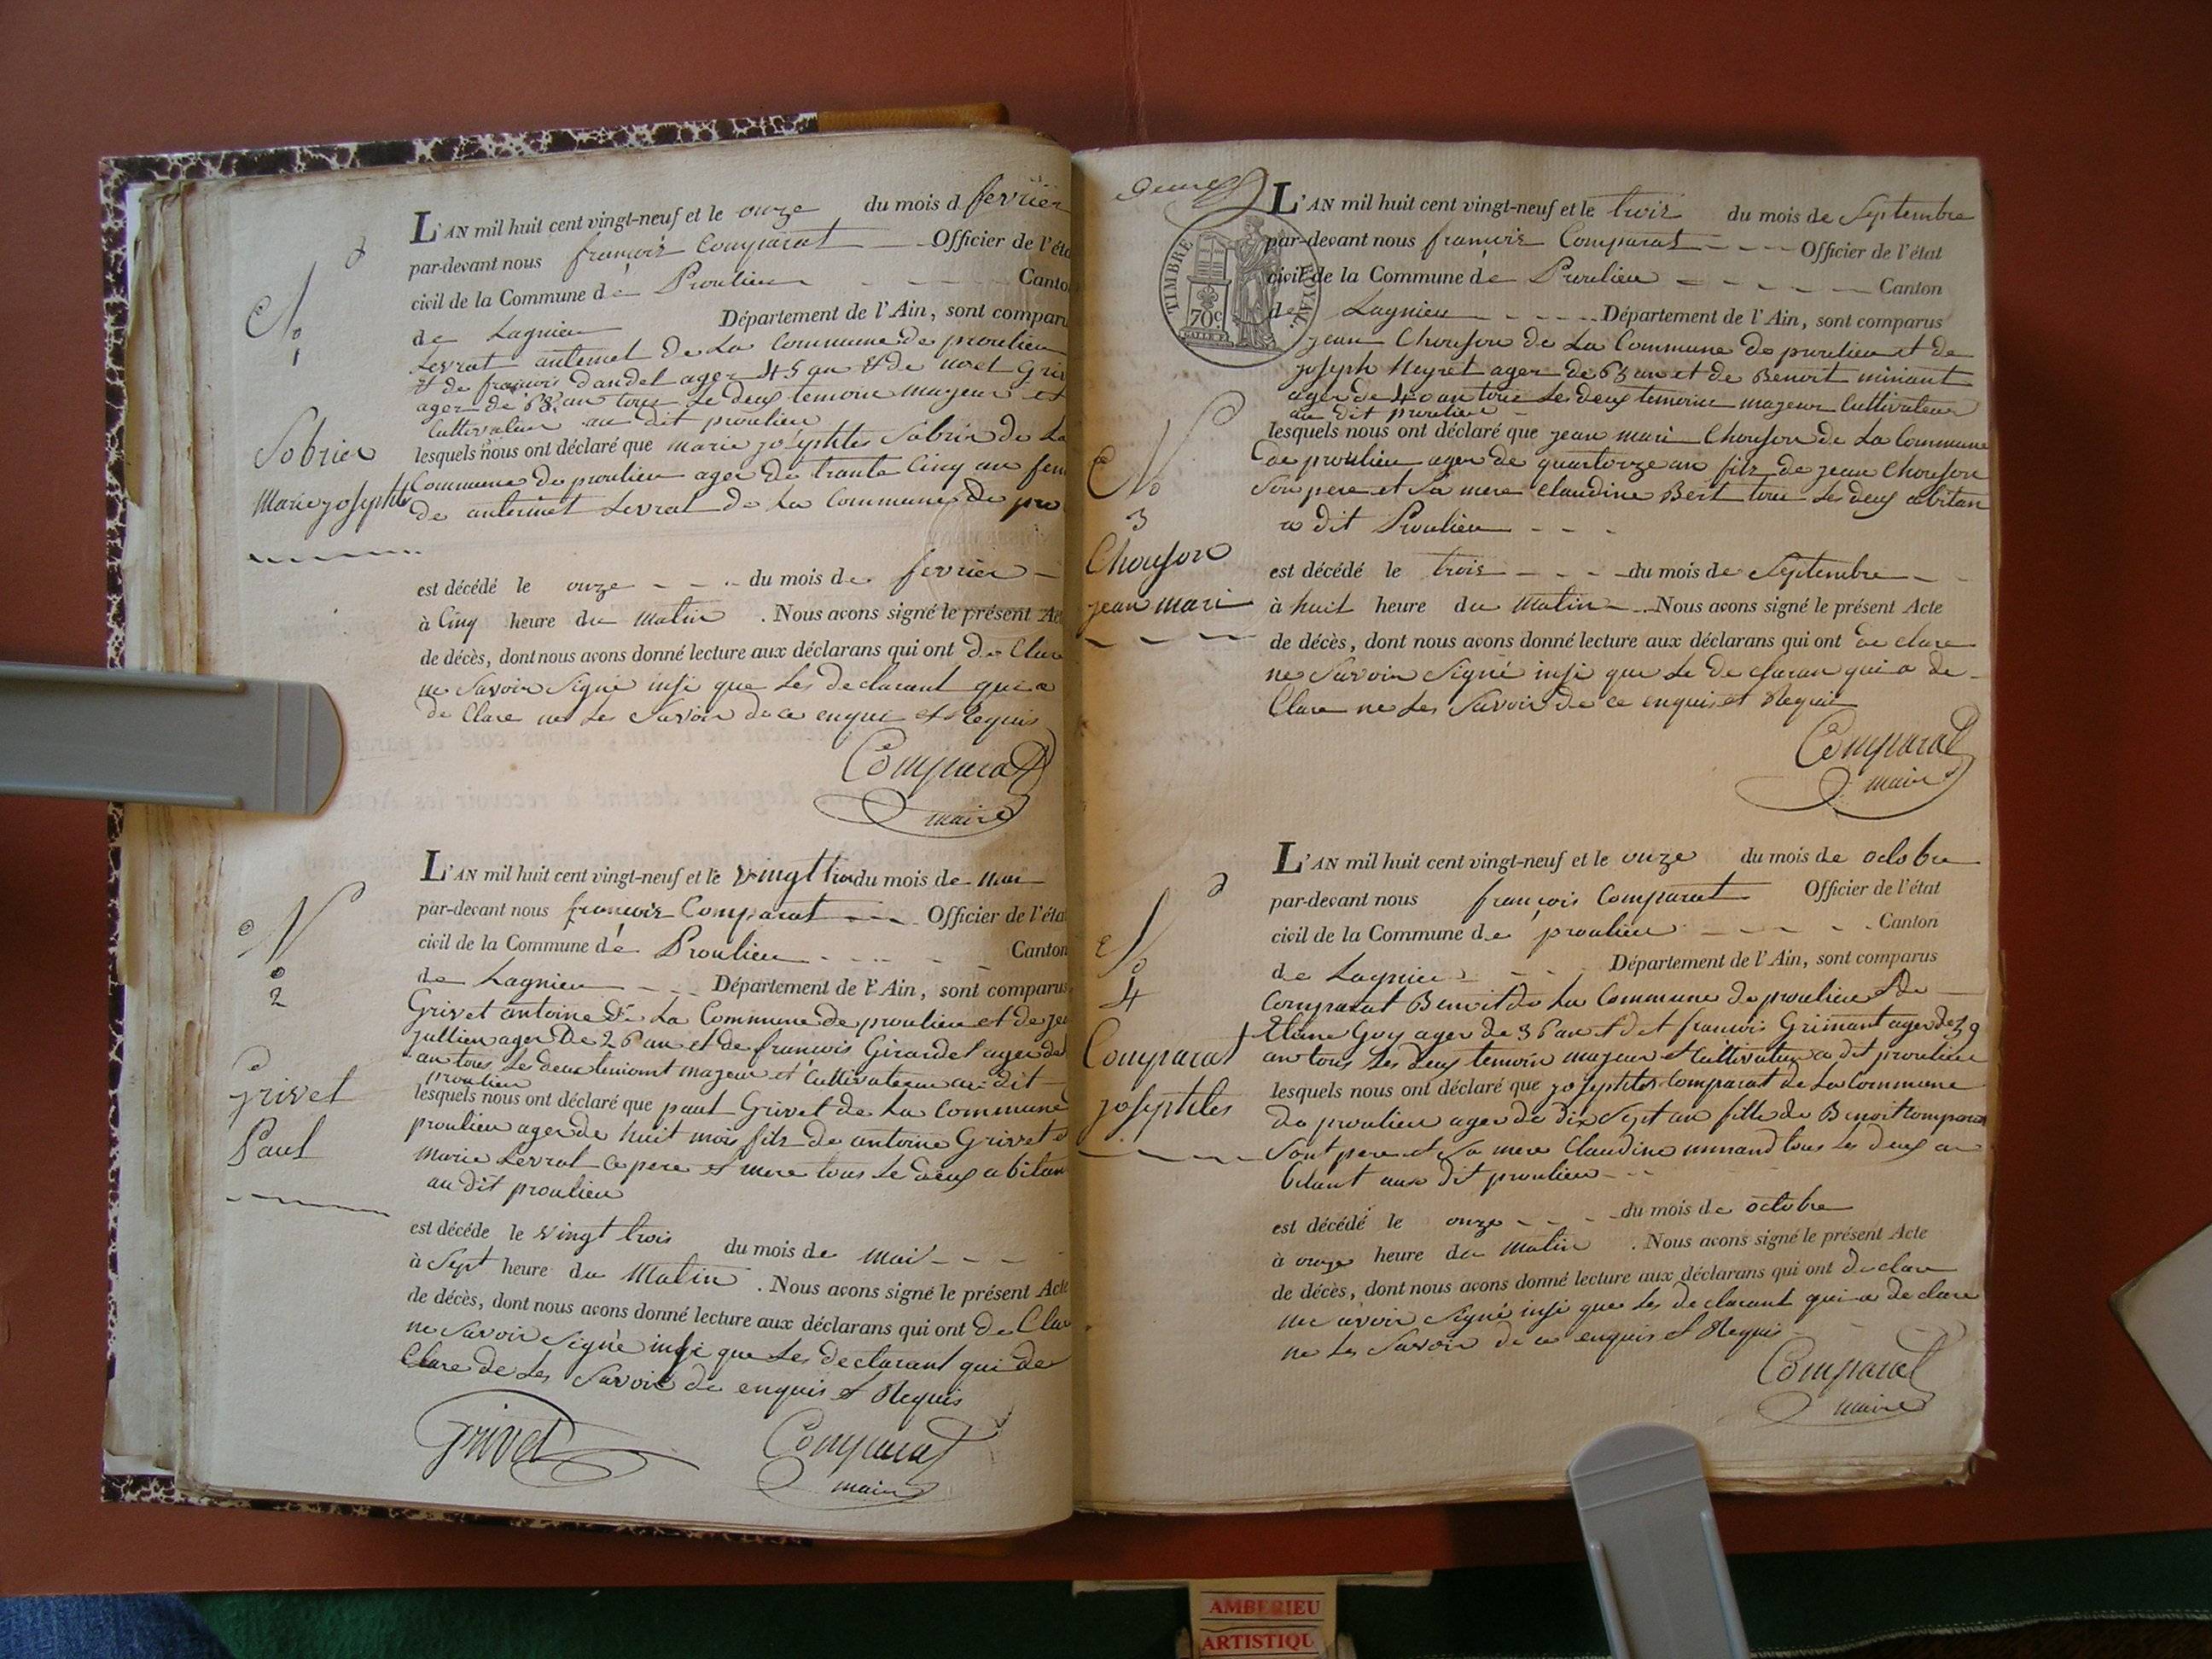 L'AN mil huit cent vingt-neuf et le onze du mois d fevrier
par-devant nous françois Comparat Officier de l'éta
civil de la Commune de Proulieu Canto
de Lagnieu Département de l'Ain, sont comparu
Levrat antemet de La Commune de proulieu
et de françois dandel ager 45 an et de noel Gri
ager de 68 an tous Le deux temoin majeur et
Cultivateur au dit proulieu
lesquels nous ont déclaré que marie josephtes Sobrier de La
Commune de proulieu ager de trante Cinq an fem
de anterinet Levrat de La Commune de pro
est décédé le onze du mois de fevrier
à Cinq heure du Matin . Nous avons signé le présent Act
de décès, dont nous avons donné lecture aux déclarans qui ont de Clare
ne Savoir Signé insi que Les declarant qui a
de Clare ne Les Savoir de ce enquis et Requis
Comparat
maire
No
1
Sobrier
Marie josephte
L'AN mil huit cent vingt-neuf et le vingt trois du mois de mai
par-devant nous françois Comparat Officier de l'éta
civil de la Commune de Proulieu Canton
de Lagnieu Département de l'Ain, sont comparus
Grivet antoine de La Commune de proulieu et de jea
jullien ager De 26 an et de françois Girardet ager de
an tous Le deux temoint majeur et Cultivateur au dit
proulieu
lesquels nous ont déclaré que paul Grivet de La Commune
proulieu ager de huit mois fils de antoine Grivet e
marie Levrat Ce pere et mere tous Le deux abitan
au dit proulieu
est décédé le vingt trois du mois de mai
à Sept heure du Matin . Nous avons signé le présent Acte
de décès, dont nous avons donné lecture aux déclarans qui ont de Clar
ne Savoir Signé insi que Les declarant qui de
Clare de Les Savoir de enquis et Requis
Grivet Comparat
maire
No
2
Grivet
Paul
TIMBRE ROYAL
70c
L'AN mil huit cent vingt-neuf et le trois du mois de Septembre
par-devant nous françois Comparat Officier de l'état
civil de la Commune de Proulieu Canton
de Lagnieu Département de l'Ain, sont comparus
jean Chouson de La Commune de proulieu et de
joseph Neyret ager de 63 an et de Benoit minant
ager de 40 an tous Les deux temoin majeur Cultivateur
au dit proulieu
lesquels nous ont déclaré que jean mari Chouson de La Commune
de proulieu ager de quartorze an fils de jean Chouson
Son pere et Sa mere Claudine Bert tous Les deux abitan
a dit Proulieu
est décédé le trois du mois de Septembre
à huit heure du Matin Nous avons signé le présent Acte
de décès, dont nous avons donné lecture aux déclarans qui ont de clare
ne Savoir Signé insi que Le declaran qui a de
Clare ne Les Savoir de ce enquis et Requis
Comparat
maire
No
3
Chouson
jean mari
L'AN mil huit cent vingt-neuf et le onze du mois de octobre
par-devant nous françois Comparat Officier de l'état
civil de la Commune de proulieu Canton
de Lagnieu Département de l'Ain, sont comparus
Comparat Benoit de La Commune de proulieu et de
Etiene Guy ager de 36 an et det françois Grimant ager de 39
an tous Les deux temoin majeur et Cultivateur a dit proulieu
lesquels nous ont déclaré que josephtes Comparat de La Commune
de proulieu ager de Dix Sept an fille de Benoit Comparat
Sont pere et Sa mere Claudine minand tous Les deux a
bitant aux dit proulieu
est décédé le onze du mois de octobre
à onze heure du Matin . Nous avons signé le présent Acte
de décès, dont nous avons donné lecture aux déclarans qui ont de clare
ne avoir Signé insi que Les declarant qui a declare
ne Les Savoir de ce enquis et Requis
Comparat
maire
No
4
Comparat
josephtes
AMBERIEU
ARTISTIQU